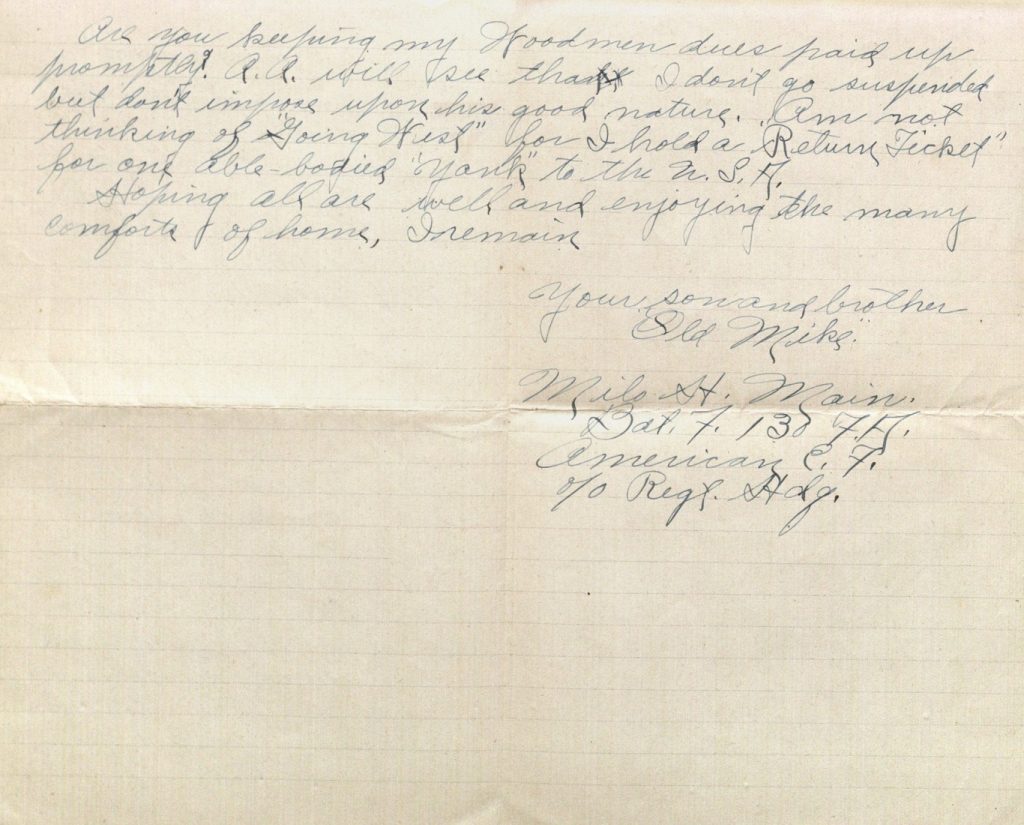 Are you keeping my Woodmen dues paid up
promptly? A.A. will see that I don't go suspended
but don't impose upon his good nature. Am not
thinking of "Going West" for I hold a "Return Ticket"
for one able-bodied "Yank" to the U.S.A.
Hoping all are well and enjoying the many
comforts of home, I remain
Your son and brother
"Old Mike".
Milo H. Main.
Bat. F. 130 F.A.
American E. F.
c/o Regl. Hdq.